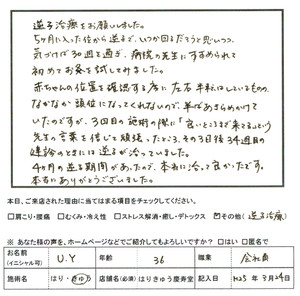 逆子治療をお願いしました。
5ヶ月に入った位から逆子で、いつか回るだろうと思いつつ、
気づけば30週を過ぎ、病院の先生にすすめられて
初めてお灸を試してみました。
赤ちゃんの位置を確認する度に左右半転はしているものの、
なかなか頭位になってくれないので、半ばあきらめかけて
いたのですが、3回目の施術の際に「良いところまで来てる」という
先生の言葉を信じて頑張ったところ、その3日後34週目の
健診のときには逆子が治っていました。
4ヶ月の逆子期間があったので、本当に治って良かったです。
本当にありがとうございました。
本日、ご来店された理由に当てはまる項目をチェックしてください。
□肩こり・腰痛 □むくみ・冷え性 □ストレス解消・癒し・デトックス ☑その他(逆子治療)
※ あなた様の声を、ホームページなどでご紹介してもよろしいですか? □はい □匿名で
お名前(イニシャル可) U.Y 年齢 36 職業 会社員
施術名 はり・きゅう 店舗名(必須) はりきゅう慶寿堂 記入日 H25年9月24日